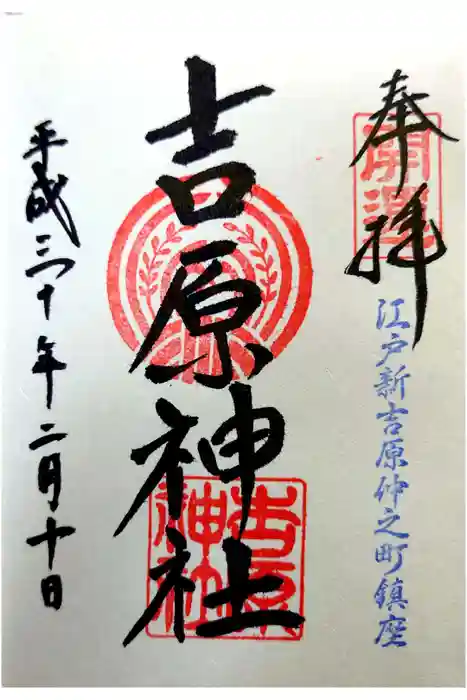 奉拝
開運
江戸新吉原仲之町鎮座
吉原神社
吉原神社
平成三十年二月十日